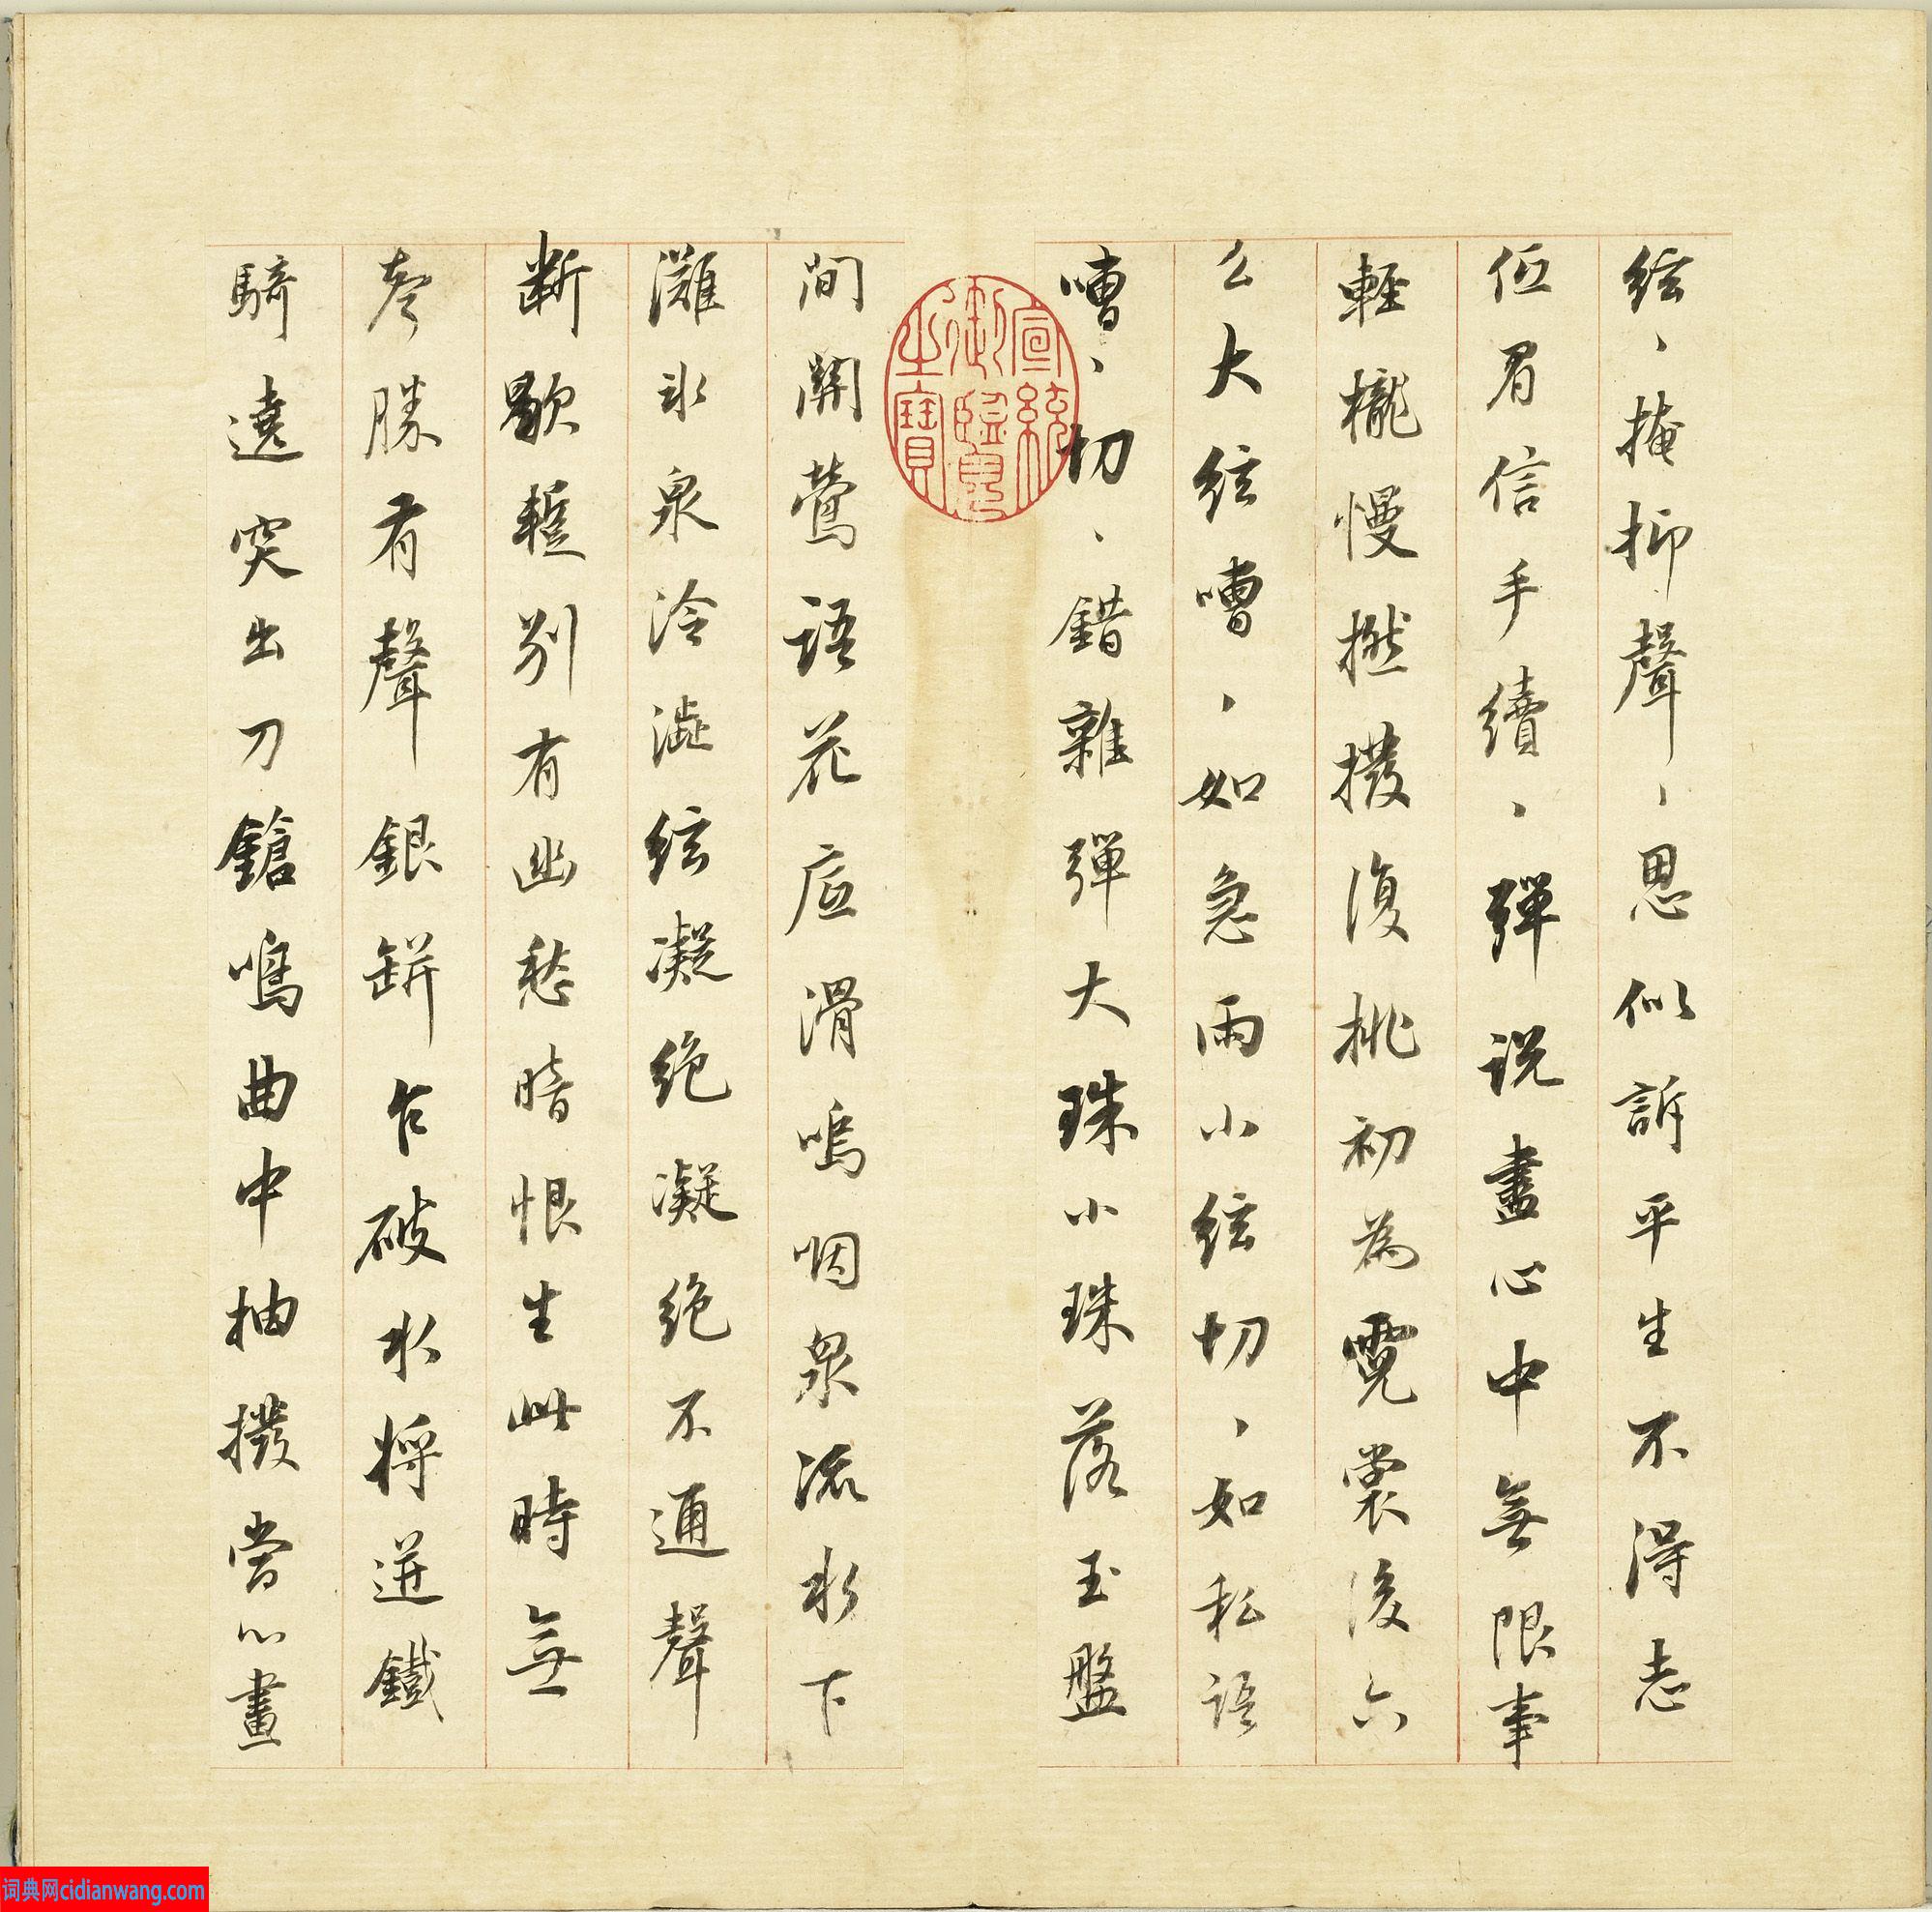 絃、掩抑聲、思似訴平生不得志
低眉信手續、彈説盡心中無限事
輕櫳慢撚撥復挑初為霓裳後六
么大絃嘈、如急雨小絃切、如私語
嘈、切、錯雜彈大珠小珠落玉盤
間關鶯語花底滑嗚咽泉流水下
灘氷泉冷澁絃凝絶凝絶不通聲
斷歇蹔別有幽愁暗恨生此時無
聲勝有聲銀缾乍破水將迸鐵
騎遶突出刀鎗鳴曲中抽撥當心畫
宣統御覽之寶
词典网cidianwang.com